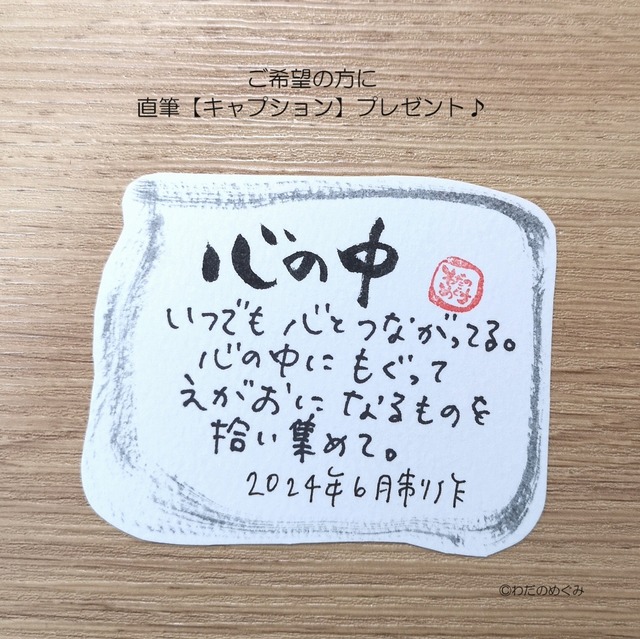 ご希望の方に
直筆【キャプション】プレゼント♪
心の中
いつでも心とつながってる。
心の中にもぐって
えがおになるものを
拾い集めて。
2024年6月制作
©わだのめぐみ